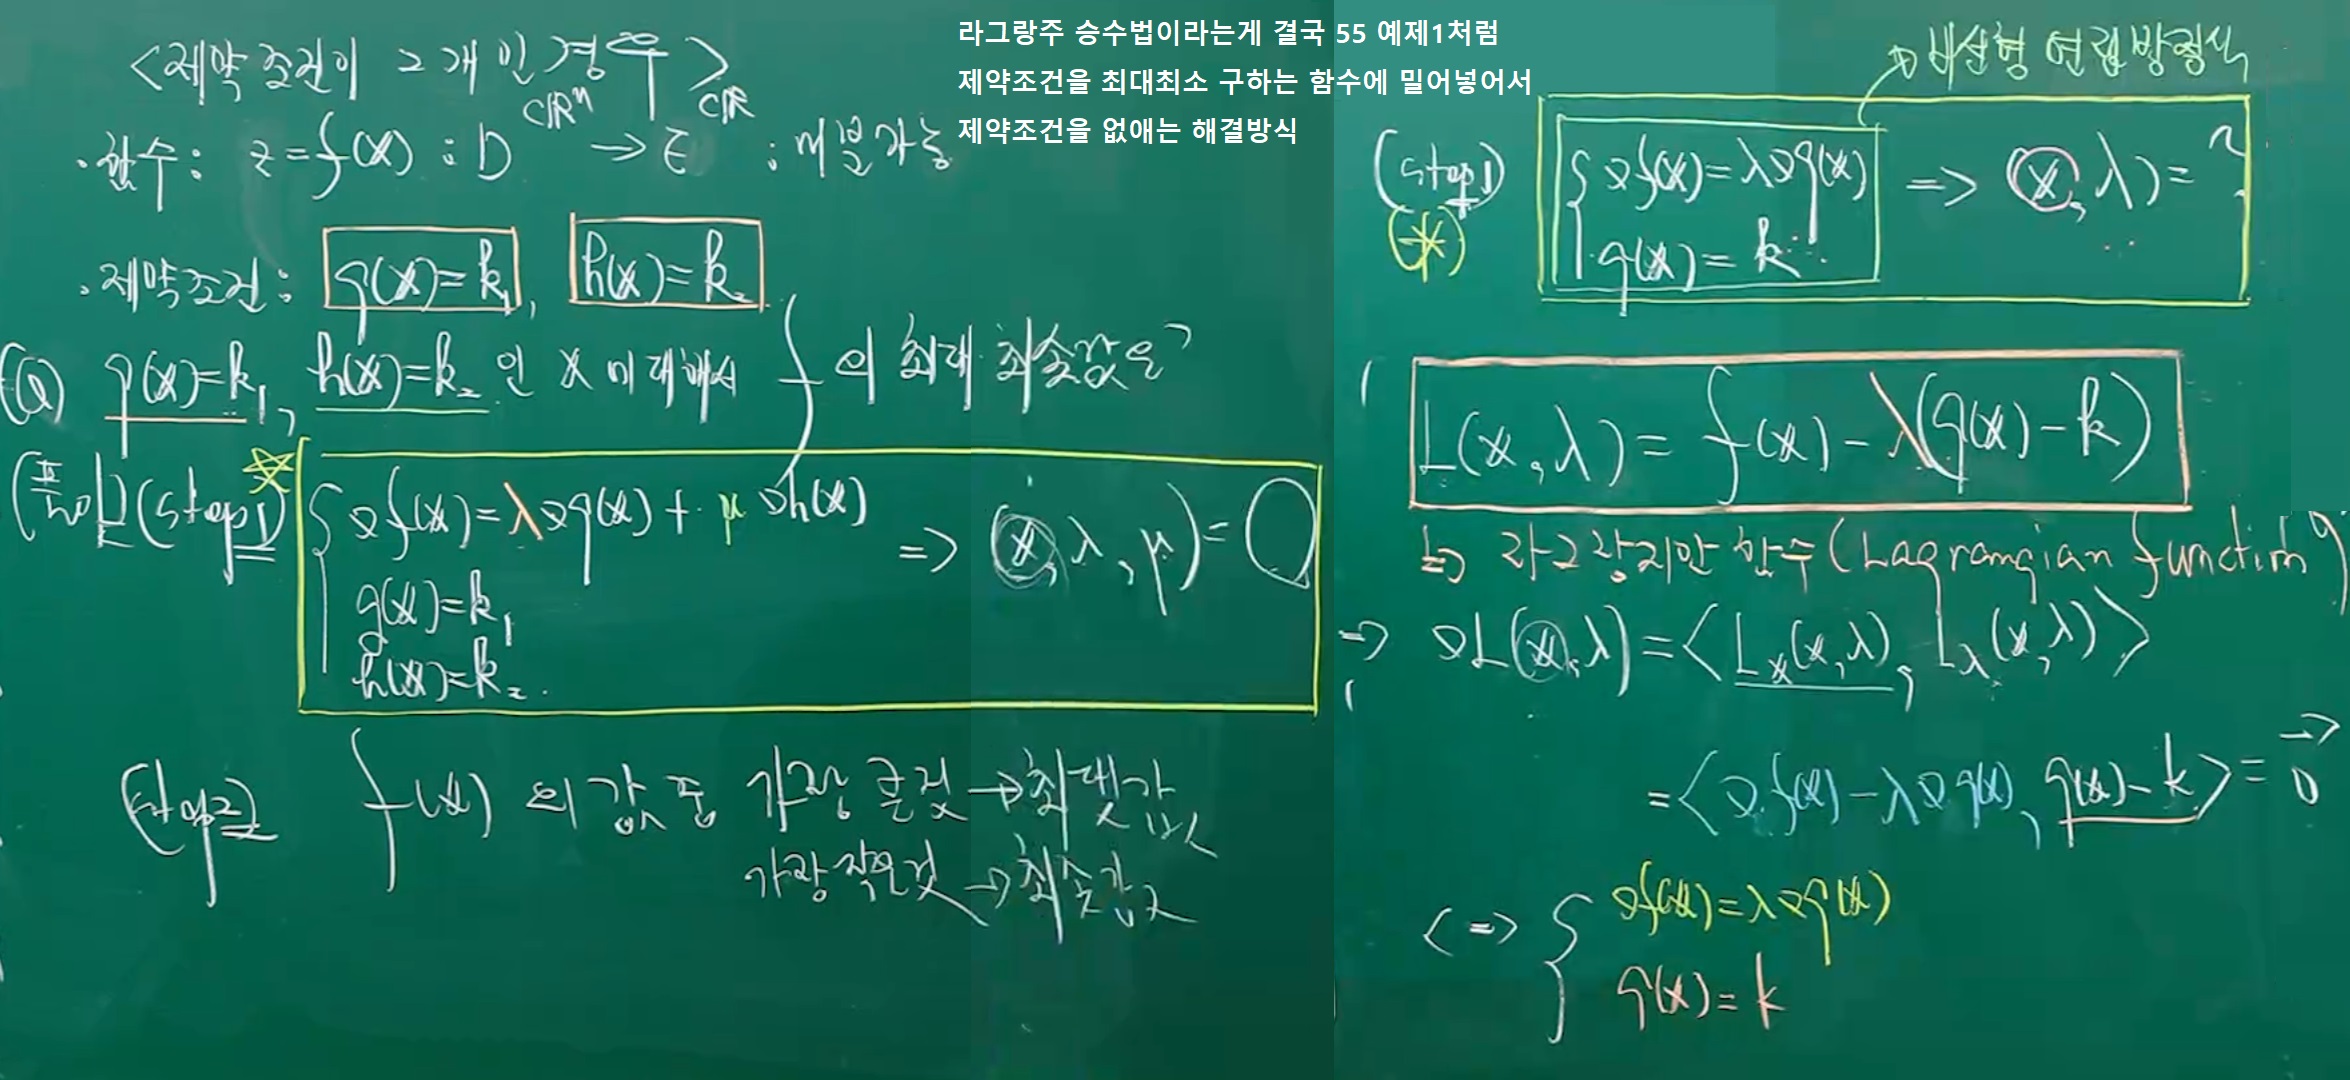 라그랑주 승수법이라는게 결국 55 예제1처럼
제약조건을 최대최소 구하는 함수에 밀어넣어서
제약조건을 없애는 해결방식
<제약 조건이 2개인 경우>
·함수: z=f(x) : D ⊂ℝⁿ → E ⊂ℝ : 미분가능
·제약조건: g(x)=k₁, h(x)=k₂
(Q) g(x)=k₁, h(x)=k₂ 인 x에 대해서 f의 최대·최솟값은?
(풀이) (step1) ∇f(x)=λ∇g(x)+μ∇h(x)
g(x)=k₁
h(x)=k₂.
=> (x, λ, μ)=
(step2) f(x)의 값 중 가장 큰 것→최댓값
가장 작은 것→최솟값
→비선형 연립방정식
(step1) ∇f(x)=λ∇g(x)
(*) g(x)=k
=> (x, λ)=?
L(x, λ)=f(x)-λ(g(x)-k)
=> 라그랑지안 함수 (Lagrangian function)
=> ∇L(x, λ)=<Lₓ(x, λ), L_λ(x, λ)>
=<∇f(x)-λ∇g(x), g(x)-k>=0⃗
<=> { ∇f(x)=λ∇g(x)
g(x)=k